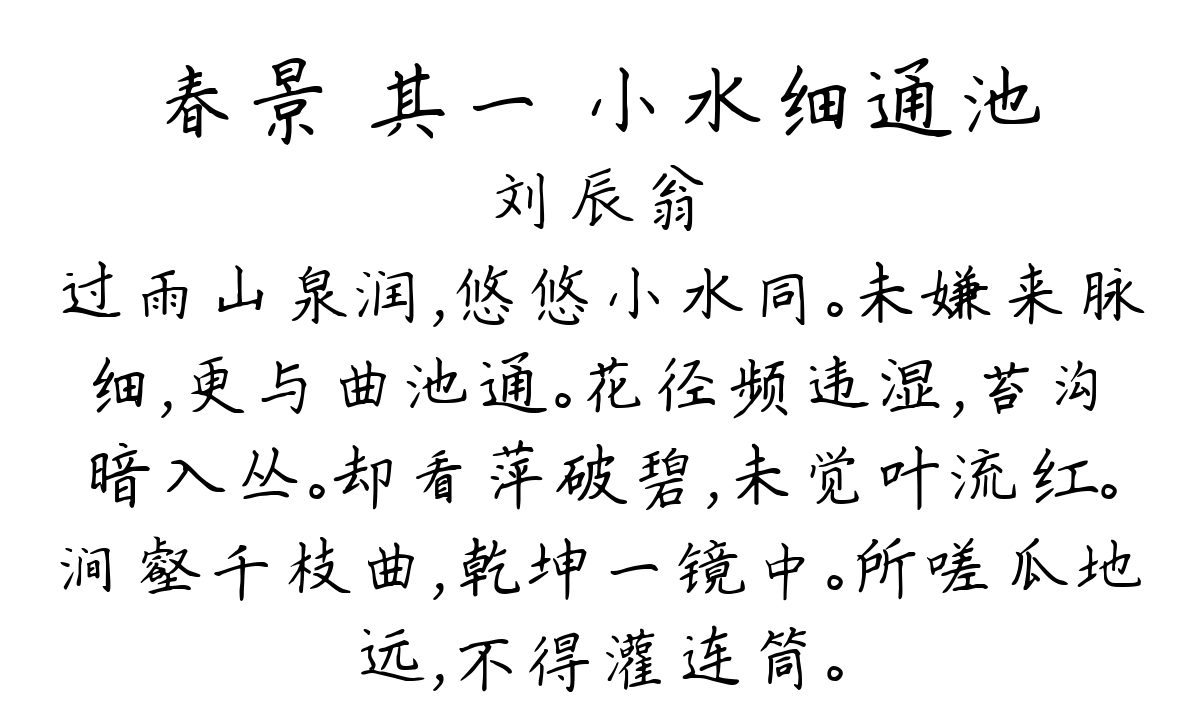 春景 其一 小水细通池
刘辰翁
过雨山泉润,悠悠小水同。未嫌来脉
细,更与曲池通。花径频违湿,苔沟
暗入丛。却看萍破碧,未觉叶流红。
涧壑千枝曲,乾坤一镜中。所嗟瓜地
远,不得灌连筒。